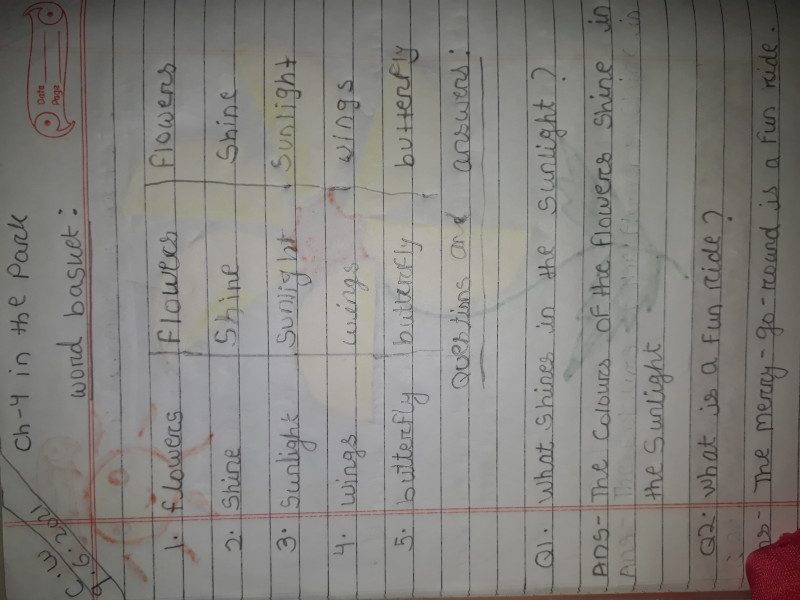 Date
Page
C.W
9.6.2021
Ch-4 in the Park
word basket:
1. flowers flowers flowers
2. Shine Shine Shine
3. Sunlight Sunlight Sunlight
4. wings wings wings
5. butterfly butterfly butterfly
Questions and answers:
Q1. What Shines in the Sunlight?
Ans- The Colours of the flowers Shine in
the Sunlight
Q2. What is a Fun ride?
ns- The Merry-go-round is a Fun ride.